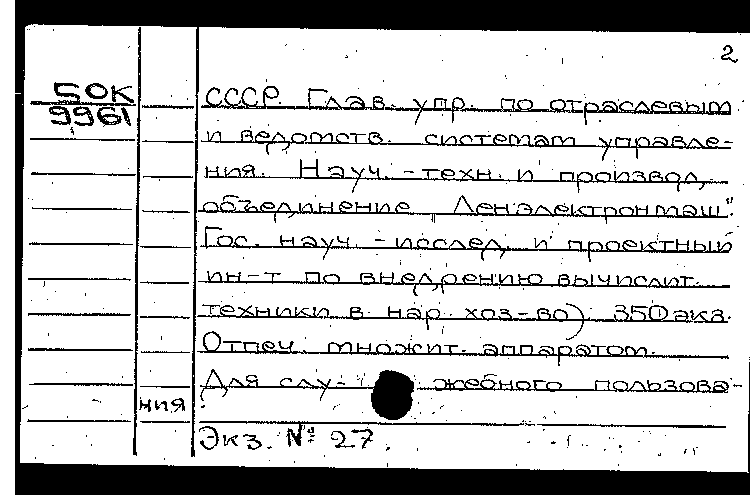 2
50К
9961
СССР. Глав. упр. по отраслевым
и ведомств. системам управле-
ния. Науч.-техн. и производ.
объединение „Ленэлектронмаш".
Гос. науч.-исслед. и проектный
ин-т по внедрению вычислит.
техники в нар. хоз-во) 350 экз.
Отпеч. множит. аппаратом.
Для слу- жебного пользова-
ния.
Экз. № 27.